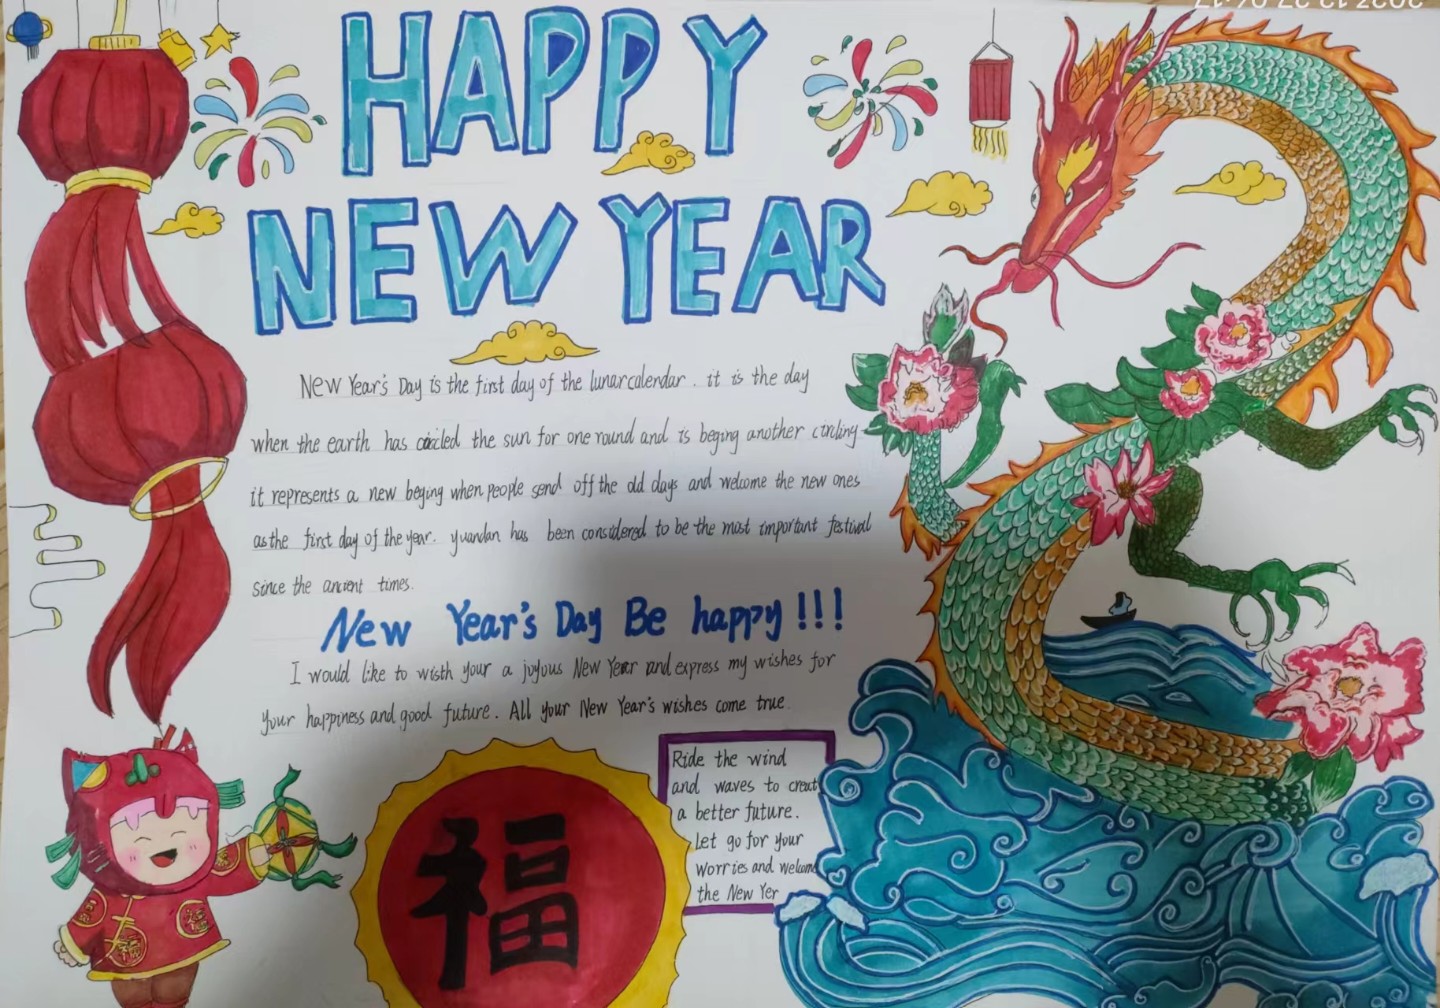 HAPPY
NEW YEAR
New Year's Day is the first day of the lunar calendar. it is the day
when the earth has circled the sun for one round and is beging another circling
it represents a new beging when people send off the old days and welcome the new ones
as the first day of the year. yuandan has been considered to be the most important festival
since the ancient times.
New Year's Day Be happy!!!
I would like to wisth your a joyous New Year and express my wishes for
your happiness and good future. All your New Year's wishes come true.
Ride the wind
and waves to creat
a better future.
Let go for your
worries and welcome
the New Yer
福